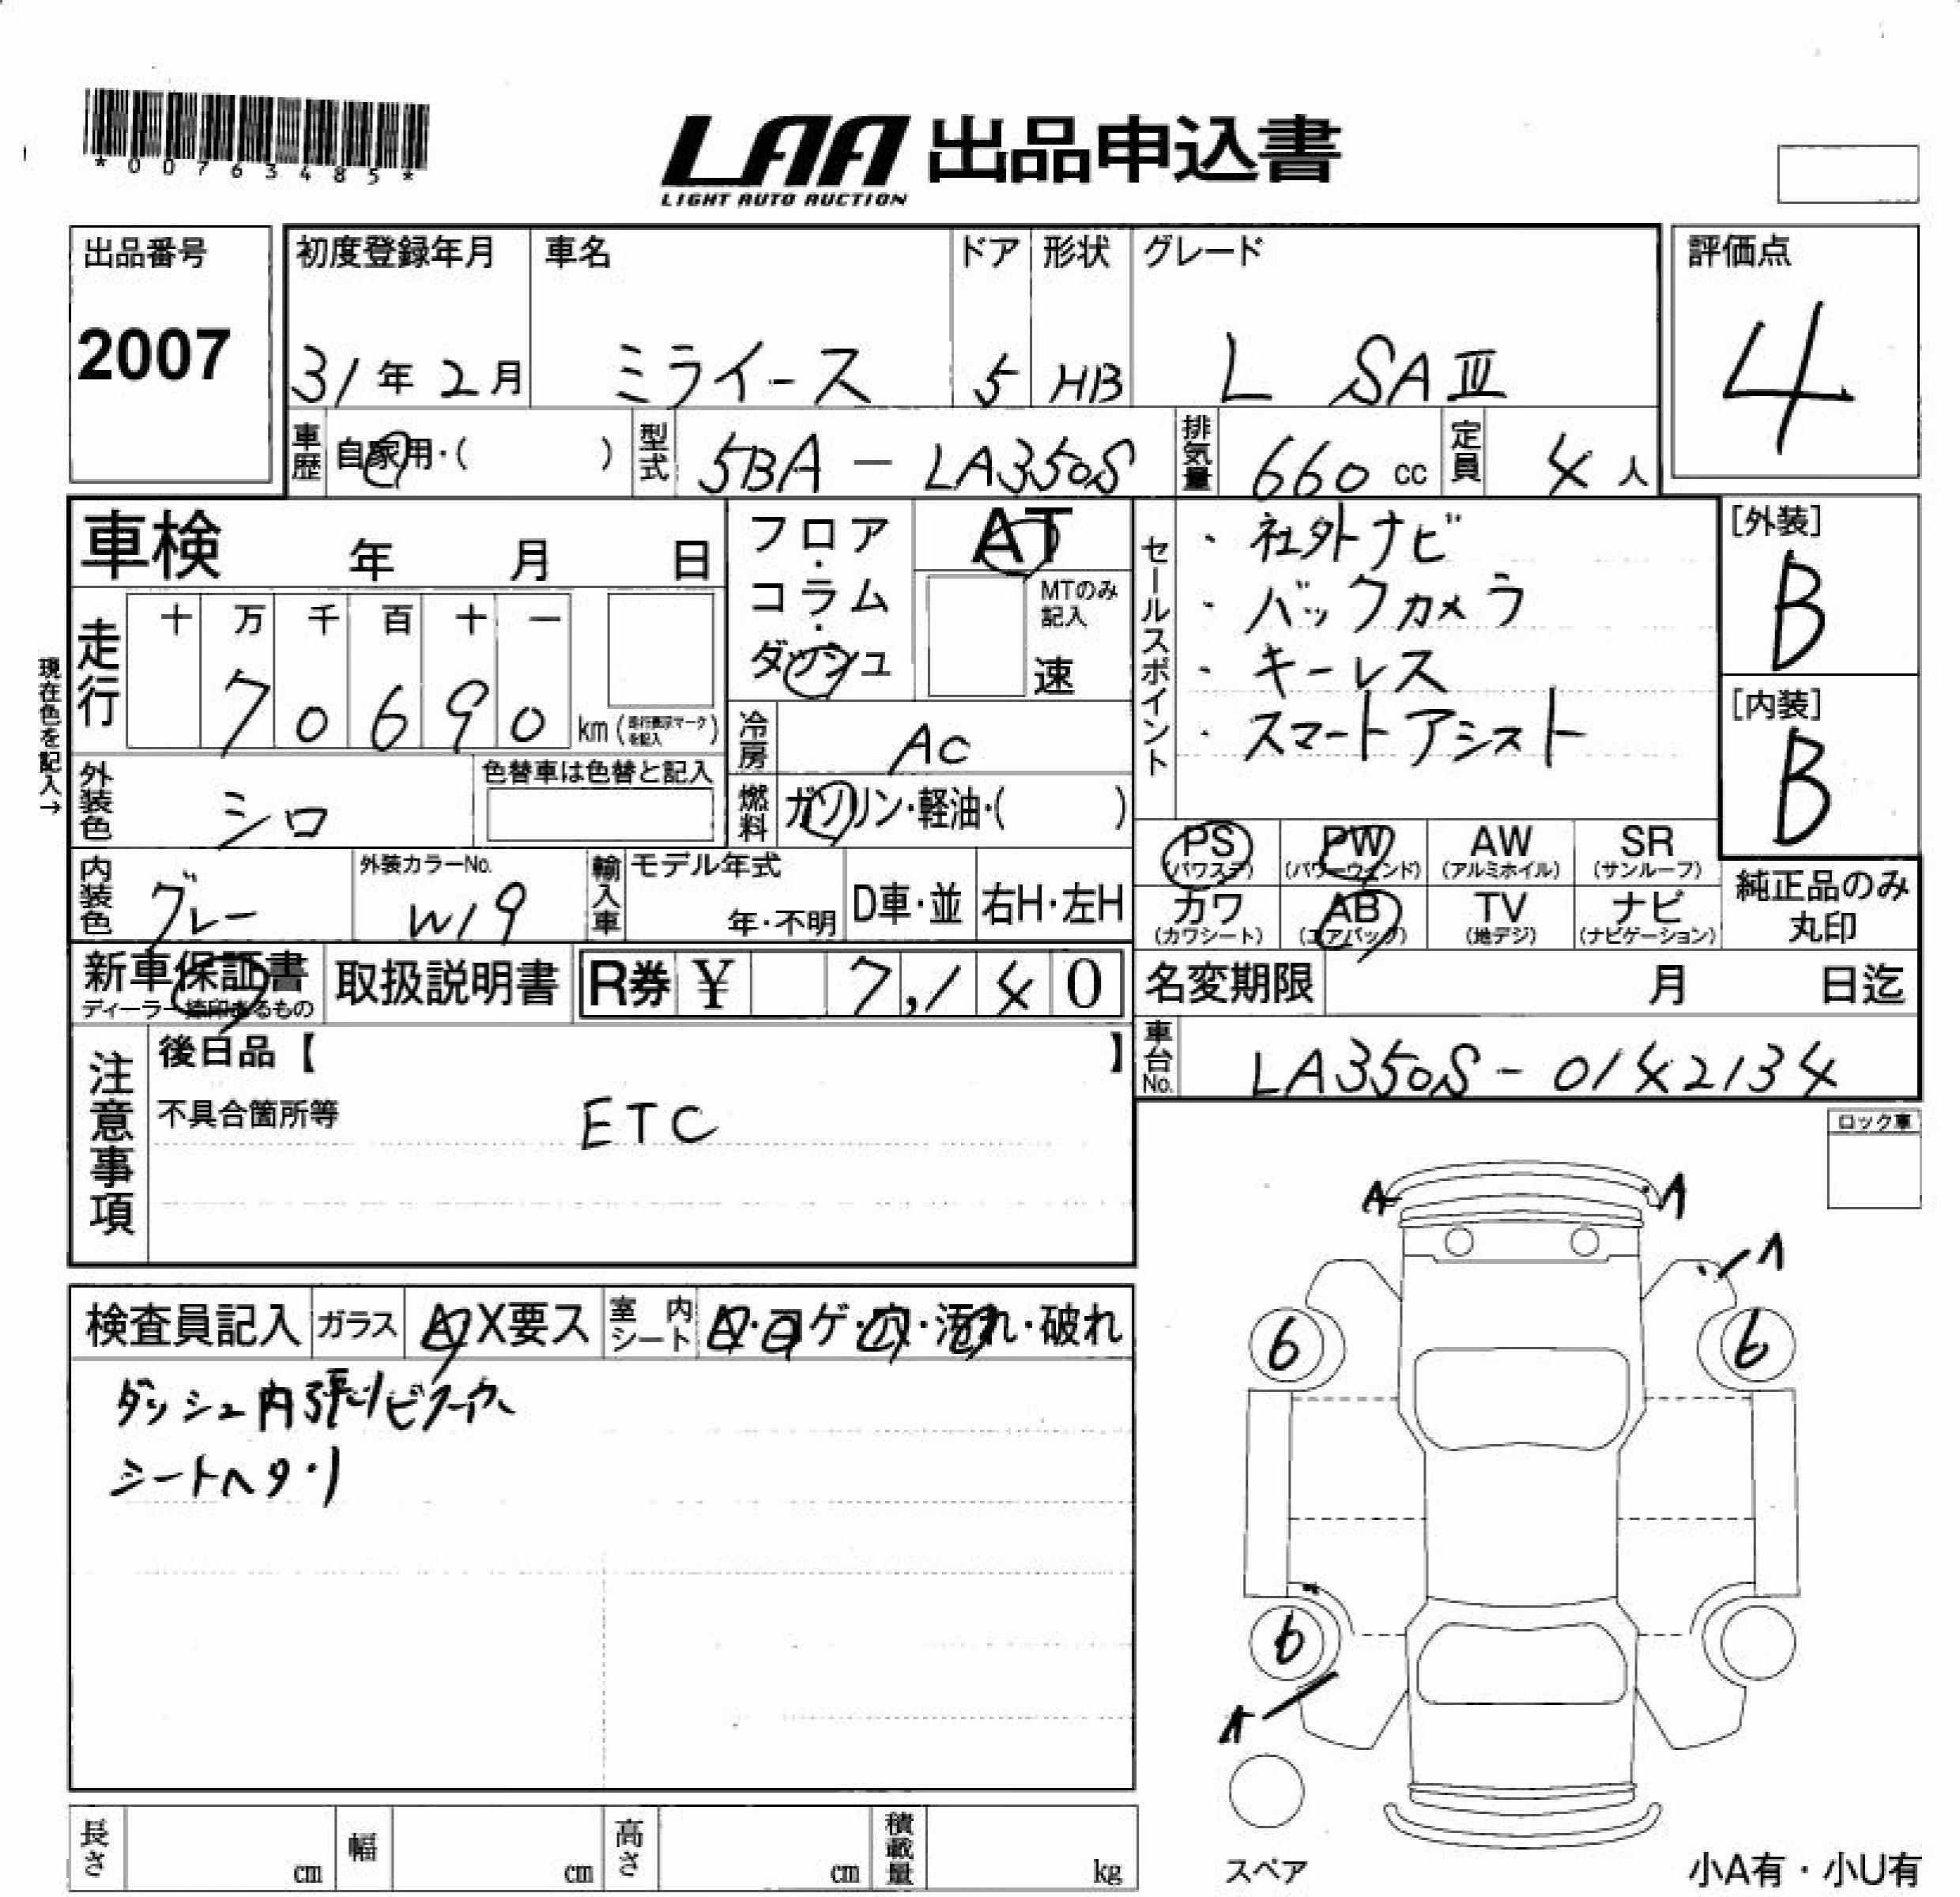 *00763485*
LAA 出品申込書
LIGHT AUTO AUCTION
出品番号
2007
初度登録年月
31年2月
車名
ミライース
ドア
5
形状
HB
グレード
L SAⅢ
評価点
4
車歴 自家用・( )
型式 5BA-LA350S
排気量 660cc
定員 4人
車検 年 月 日
フロア・コラム・ダッシュ
AT
MTのみ記入
速
走行
十 万 千 百 十 一
7 0 6 9 0 km
現在色を記入→
冷房 AC
燃料 ガソリン・軽油・( )
外装色 シロ
色替車は色替と記入
内装色 グレー
外装カラーNo.
W19
輸入車
モデル年式
年・不明
D車・並
右H・左H
セールスポイント
・社外ナビ
・バックカメラ
・キーレス
・スマートアシスト
[外装]
B
[内装]
B
PS (パワステ)
PW (パワーウィンド)
AW (アルミホイル)
SR (サンルーフ)
カワ (カワシート)
AB (エアバッグ)
TV (地デジ)
ナビ (ナビゲーション)
純正品のみ
丸印
新車保証書
ディーラー捺印あるもの
取扱説明書
R券 ¥ 7,140
名変期限 月 日迄
車台No. LA350S-0142134
注意事項
後日品【 】
不具合箇所等
ETC
ロック車
検査員記入
ガラス A X要ス
室内シート A・コゲ・穴・汚れ・破れ
ダッシュ内張リビスアナ
シートヘタリ
A
A
A
6
6
6
A
スペア
小A有・小U有
長さ cm
幅 cm
高さ cm
積載量 kg